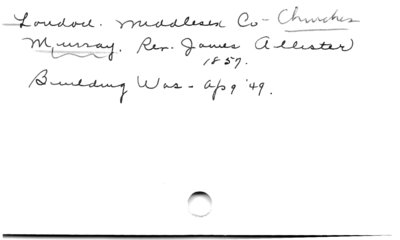 London. Middlesex Co - Churches
Murray. Rev. James Allister
1857.
Building Was - Ap 9 '49.